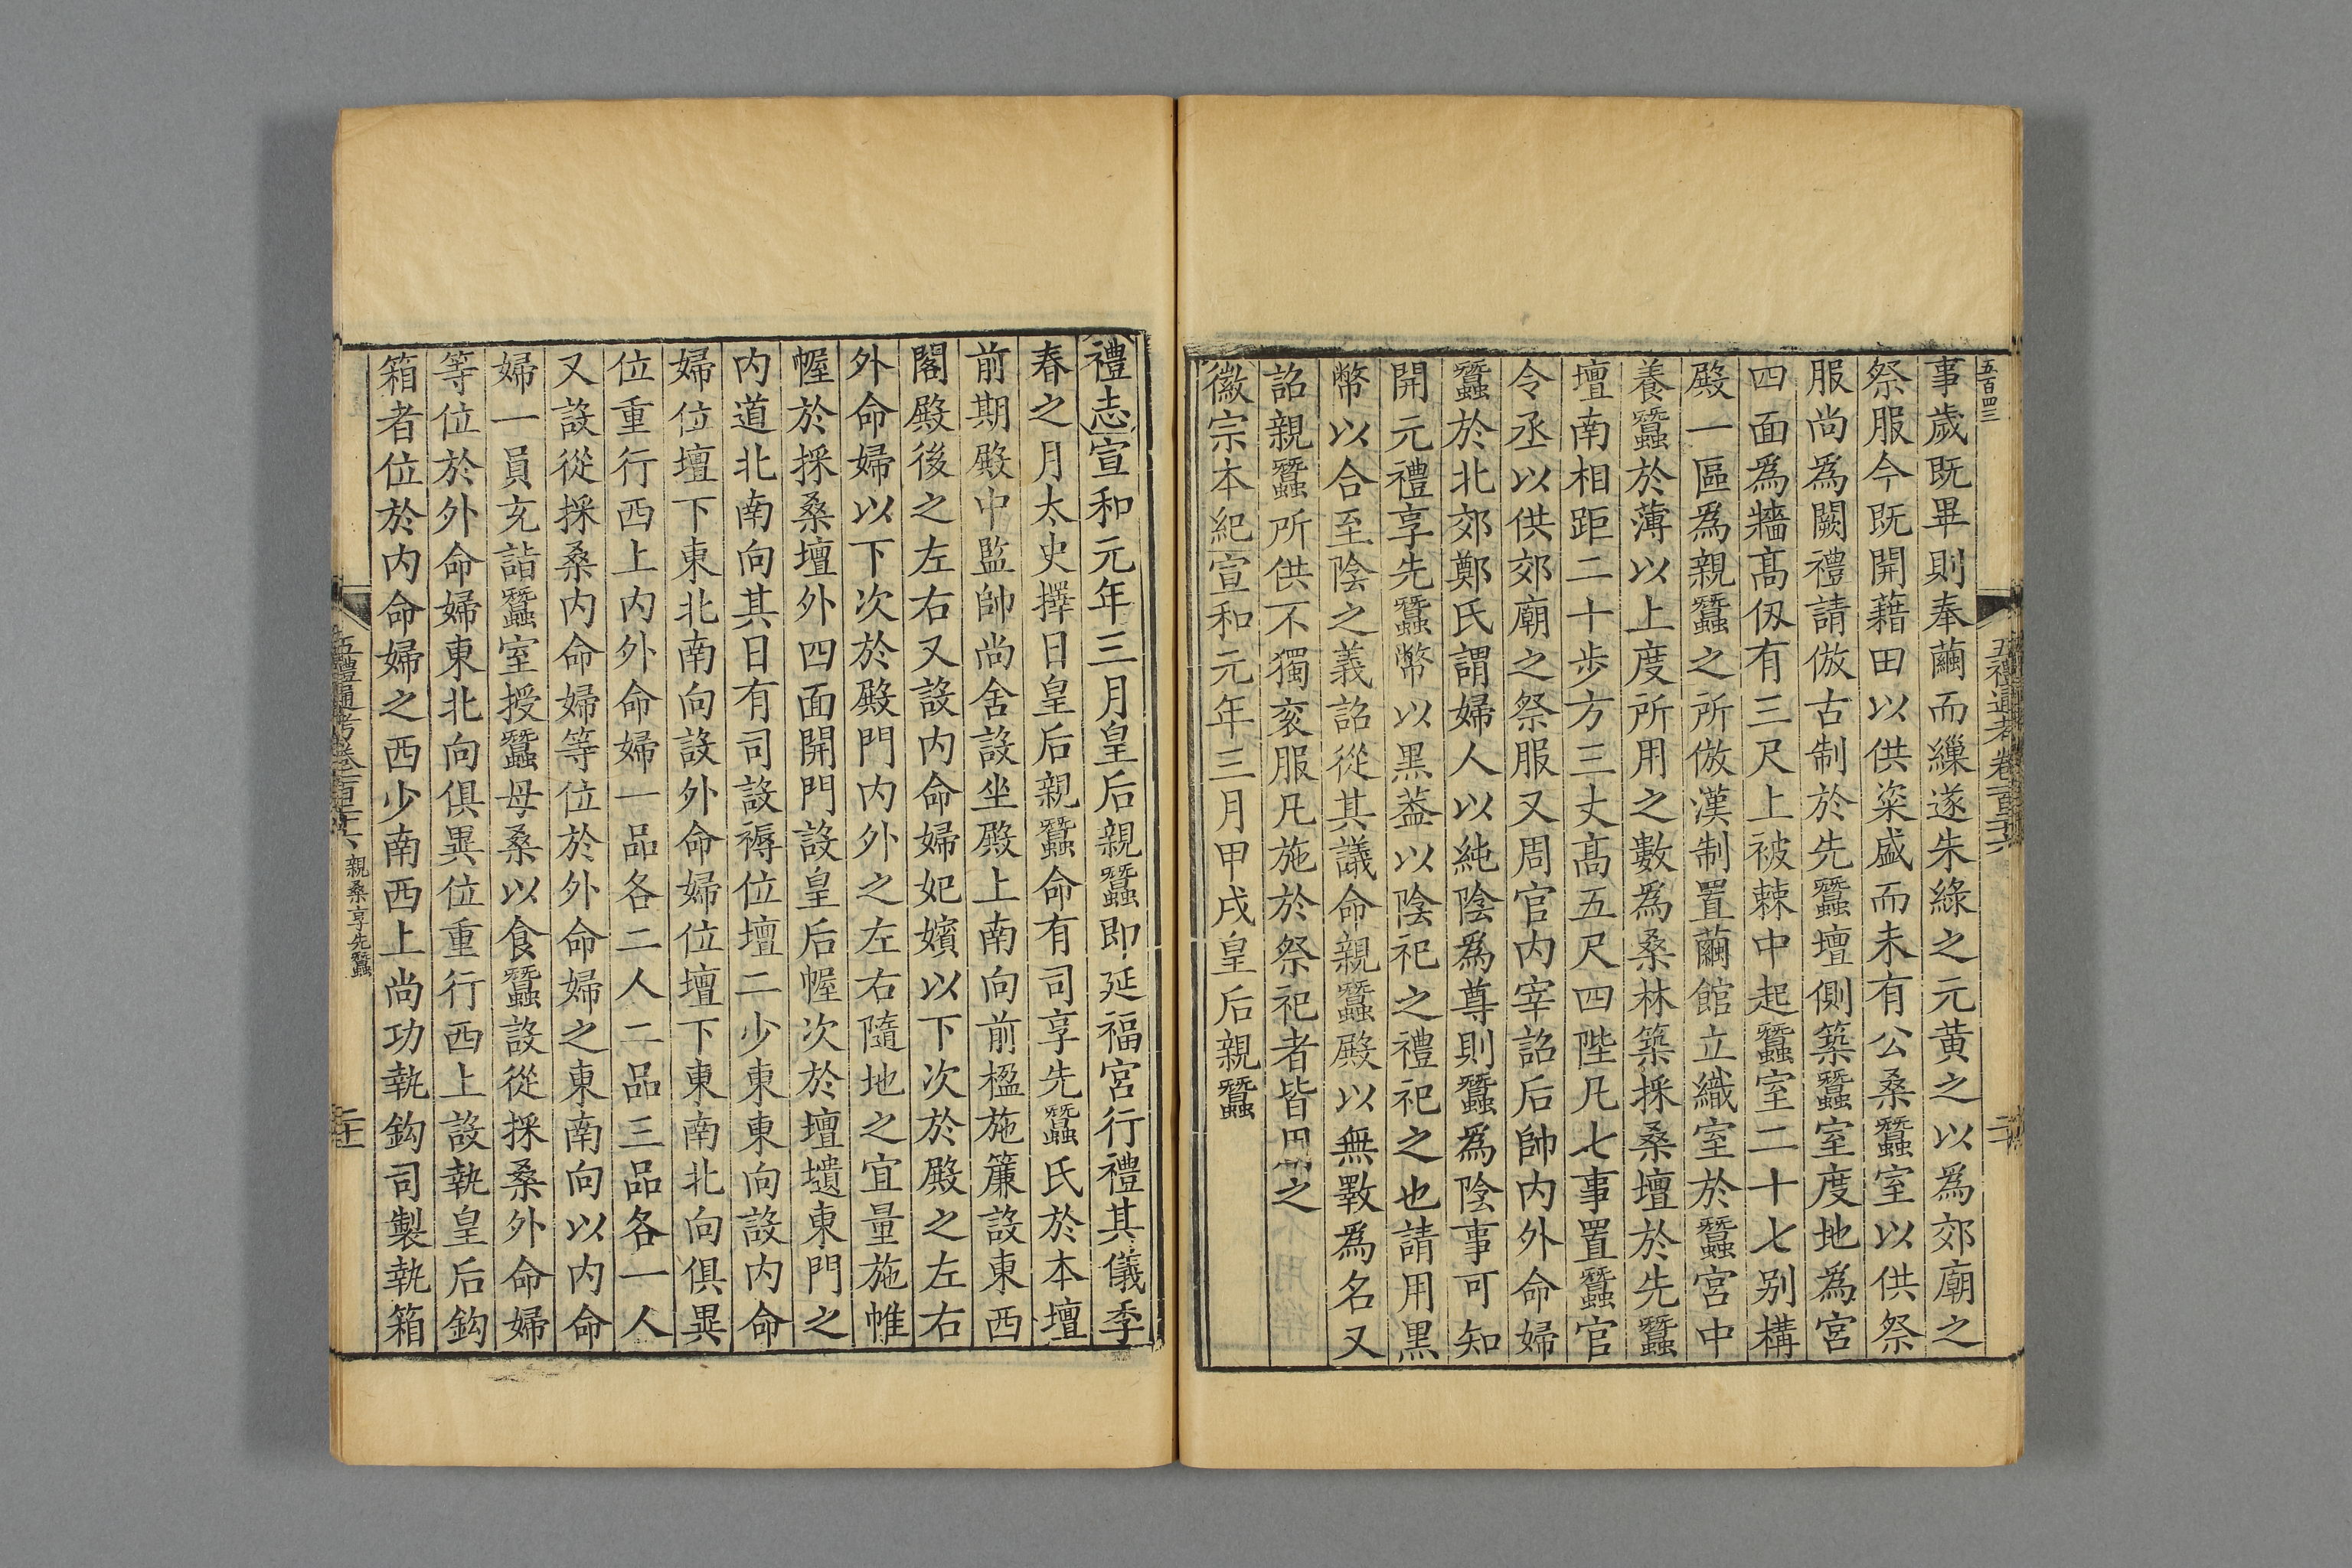 五百四三
五禮通考卷一百二十六
事歲既畢則奉繭而繅遂朱綠之元黃之以爲郊廟之
祭服今既開藉田以供粢盛而未有公桑蠶室以供祭
服尚爲闕禮請倣古制於先蠶壇側築蠶室度地爲宮
四面爲牆髙仭有三尺上被棘中起蠶室二十七别構
殿一區爲親蠶之所倣漢制置繭館立織室於蠶宮中
養蠶於薄以上度所用之數爲桑林築採桑壇於先蠶
壇南相距二十步方三丈髙五尺四陛凡七事置蠶官
令丞以供郊廟之祭服又周官内宰詔后帥内外命婦
蠶於北郊鄭氏謂婦人以純陰爲尊則蠶爲陰事可知
開元禮享先蠶幣以黑葢以陰祀之禮祀之也請用黑
幣以合至陰之義詔從其議命親蠶殿以無斁爲名又
詔親蠶所供不獨衮服凡施於祭祀者皆用之
徽宗本紀宣和元年三月甲戌皇后親蠶
禮志宣和元年三月皇后親蠶即延福宮行禮其儀季
春之月太史擇日皇后親蠶命有司享先蠶氏於本壇
前期殿中監帥尚舍設坐殿上南向前楹施簾設東西
閣殿後之左右又設内命婦妃嬪以下次於殿之左右
外命婦以下次於殿門内外之左右隨地之宜量施帷
幄於採桑壇外四面開門設皇后幄次於壇壝東門之
内道北南向其日有司設褥位壇二少東東向設内命
婦位壇下東北南向設外命婦位壇下東南北向俱異
位重行西上内外命婦一品各二人二品三品各一人
又設從採桑内命婦等位於外命婦之東南向以内命
婦一員充詣蠶室授蠶母桑以食蠶設從採桑外命婦
等位於外命婦東北向俱異位重行西上設執皇后鈎
箱者位於内命婦之西少南西上尚功執鈎司製執箱
五禮通考卷一百二十六 親桑享先蠶